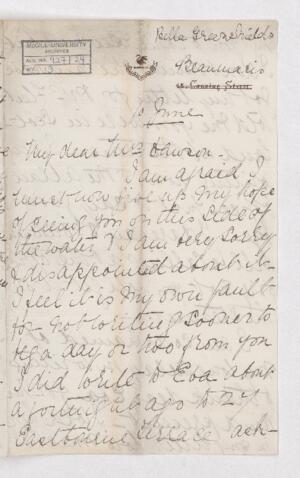 Bella Greenshields
McGILL UNIVERSITY
ARCHIVES
ACC. NO. 927/24
REF. 13
Beaumaris
Canning Street
June
My dear Mrs Dawson.
I am afraid I
must now give up my hope
of seeing you on this side of
the water & I am very sorry
& disappointed about it -
I feel it is my own fault
for not writing sooner to
beg a day or two from you
I did write to Eva about
a fortnight ago to 24
Eastbourne Terrace ask-